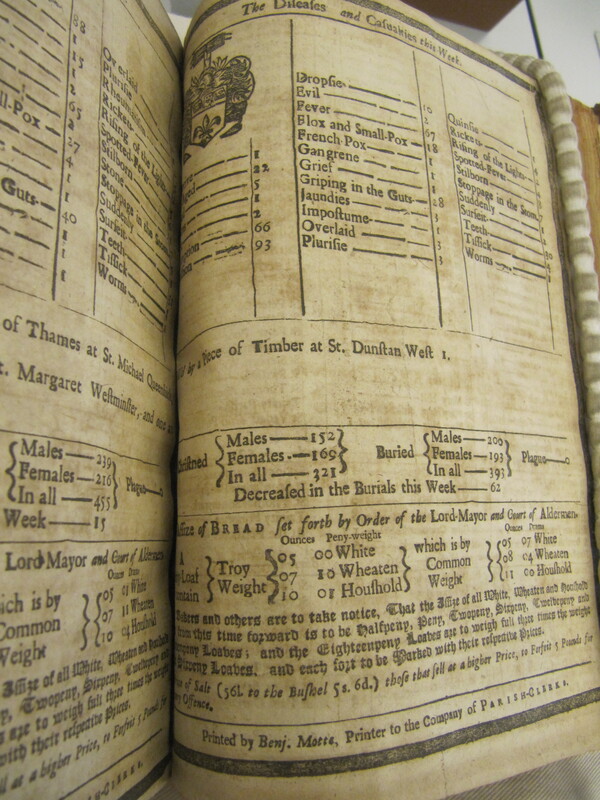 88
15
1
2
65
27
4
1
1
40
1
1
1
ll-Pox
Guts
Overlaid
Plurisie
Rickets
Rising of the Lights
Spotted-Fever
Stilborn
Stone
Stoppage in the Stom
Suddenly
Surfeit
Teeth
Tissick
Worms
of Thames at St. Michael Queenhith
t. Margaret Westminster, and one
Males — 239
Females — 216
In all — 455
Plague — 0
Week — 15
Lord Mayor and Court of Aldermen
Ounces Drams
ich is by
Common
Weight
05 01 White
07 11 Wheaten
10 04 Houshold
Assize of all White, Wheaten and Houshold
y, Twopeny, Sixpeny, Twelvepeny and
es are to weigh full three times the weight
with their respective Prizes.
ll at a higher Price, to Forfeit 5 Pounds for
SH-CLERKS.
The Diseases and Casualties this Week.
1
22
5
1
2
66
93
Dropsie — 10
Evil — 2
Fever — 67
Flox and Small-Pox — 18
French Pox — 1
Gangrene — 1
Grief — 1
Griping in the Guts — 28
Jaundies — 3
Impostume — 1
Overlaid — 3
Plurisie — 3
Quinsie
Rickets
Rising of the Lights
Spotted-Fever
Stilborn
Stoppage in the Stom.
Suddenly
Surfeit
Teeth
Tissick
Worms
by a Piece of Timber at St. Dunstan West 1.
Christned
Males — 152
Females — 169
In all — 321
Buried
Males — 200
Females — 193
In all — 393
Plague — 0
Decreased in the Burials this Week — 62
Assize of BREAD set forth by Order of the Lord-Mayor and Court of Aldermen.
A
Loaf
Troy
Weight
Ounces Peny-weight
05 00 White
07 10 Wheaten
10 01 Houshold
which is by
Common
Weight
Ounces Drams
05 07 White
08 04 Wheaten
11 00 Houshold
Bakers and others are to take notice, That the Assize of White, Wheaten and Houshold
from this time forward is to be Halfpeny, Peny, Twopeny, Sixpeny, Twelvepeny and
peny Loaves; and the Eighteenpeny Loaves are to weigh full three times the weight
Sixpeny Loaves, and each sort to be Marked with their respective Prizes.
of Salt (56l. to the Bushel 5s. 6d.) those that sell at a higher Price, to Forfeit 5 Pounds for
Offence.
Printed by Benj. Motte, Printer to the Company of PARISH-CLERKS.